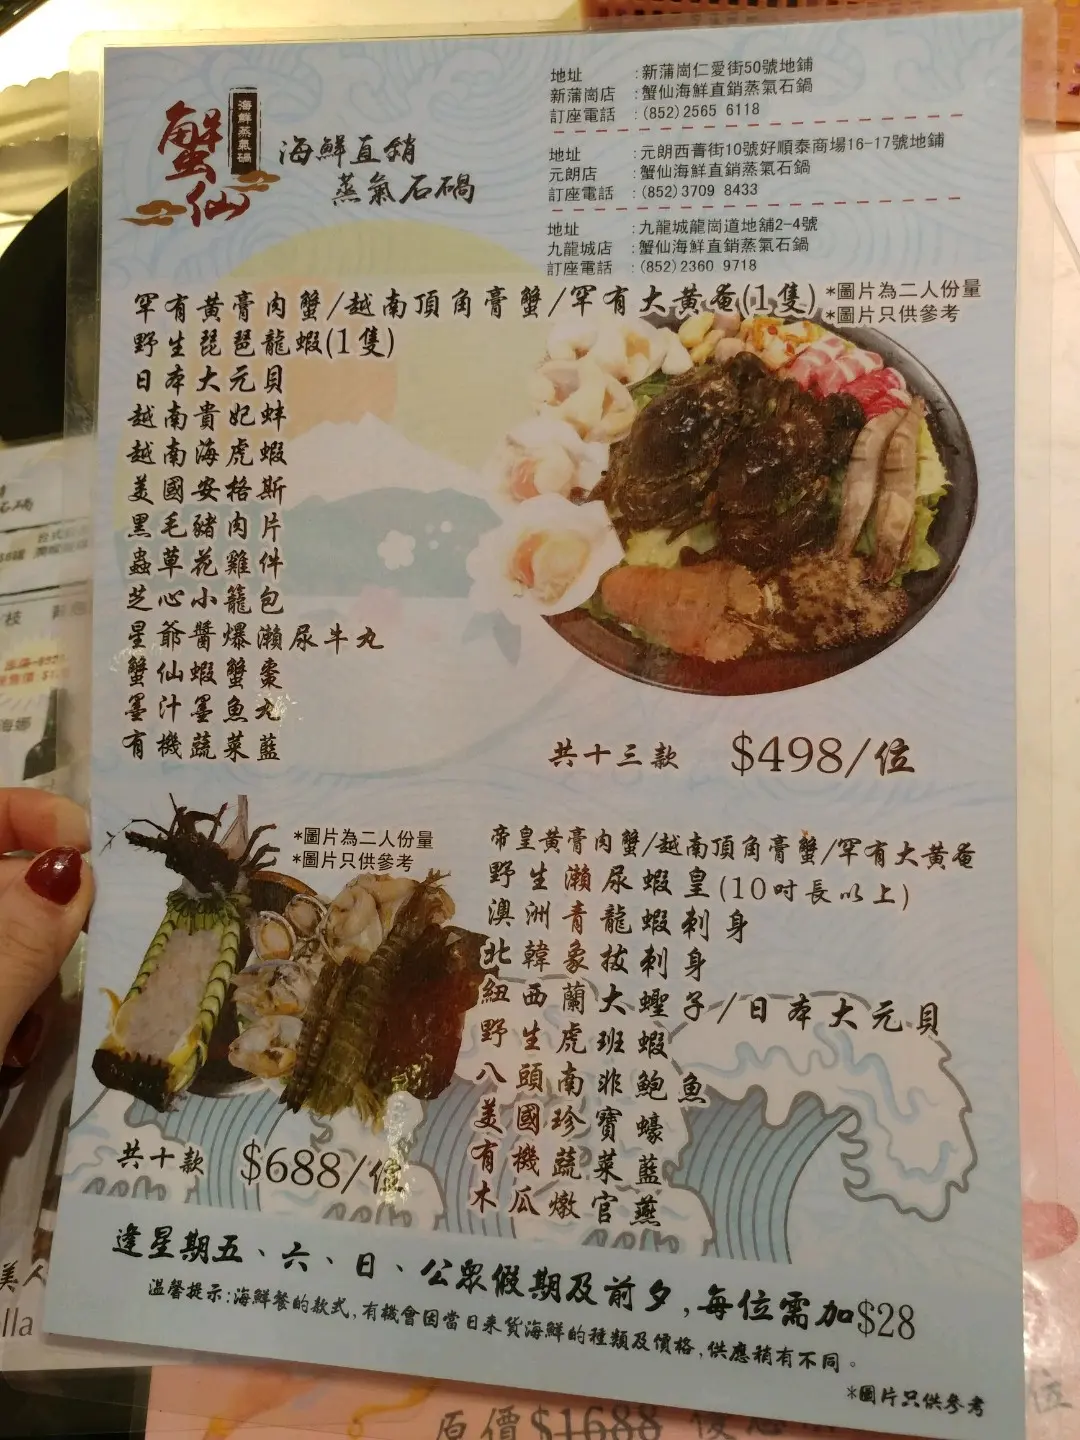 蟹仙
海鮮蒸氣石鍋
海鮮直銷
蒸氣石鍋
地址 :新蒲崗仁愛街50號地鋪
新蒲崗店 :蟹仙海鮮直銷蒸氣石鍋
訂座電話 :(852)2565 6118
地址 :元朗西菁街10號好順泰商場16-17號地鋪
元朗店 :蟹仙海鮮直銷蒸氣石鍋
訂座電話 :(852)3709 8433
地址 :九龍城龍崗道地舖2-4號
九龍城店 :蟹仙海鮮直銷蒸氣石鍋
訂座電話 :(852)2360 9718
罕有黃膏肉蟹/越南頂角膏蟹/罕有大黃奄(1隻)
*圖片為二人份量
*圖片只供參考
野生琵琶龍蝦(1隻)
日本大元貝
越南貴妃蚌
越南海虎蝦
美國安格斯
黑毛豬肉片
蟲草花雞件
芝心小籠包
星爺醬爆瀨尿牛丸
蟹仙蝦蟹棗
墨汁墨魚丸
有機蔬菜藍
共十三款 $498/位
*圖片為二人份量
*圖片只供參考
帝皇黃膏肉蟹/越南頂角膏蟹/罕有大黃奄
野生瀨尿蝦皇(10吋長以上)
澳洲青龍蝦刺身
北韓象拔刺身
紐西蘭大蟶子/日本大元貝
野生虎班蝦
八頭南非鮑魚
美國珍寶蠔
有機蔬菜藍
木瓜燉官燕
共十款 $688/位
逢星期五、六、日、公眾假期及前夕,每位需加$28
溫馨提示:海鮮餐的款式,有機會因當日來貨海鮮的種類及價格,供應稍有不同。
*圖片只供參考
原價$1688
位
石鍋
美人
lla